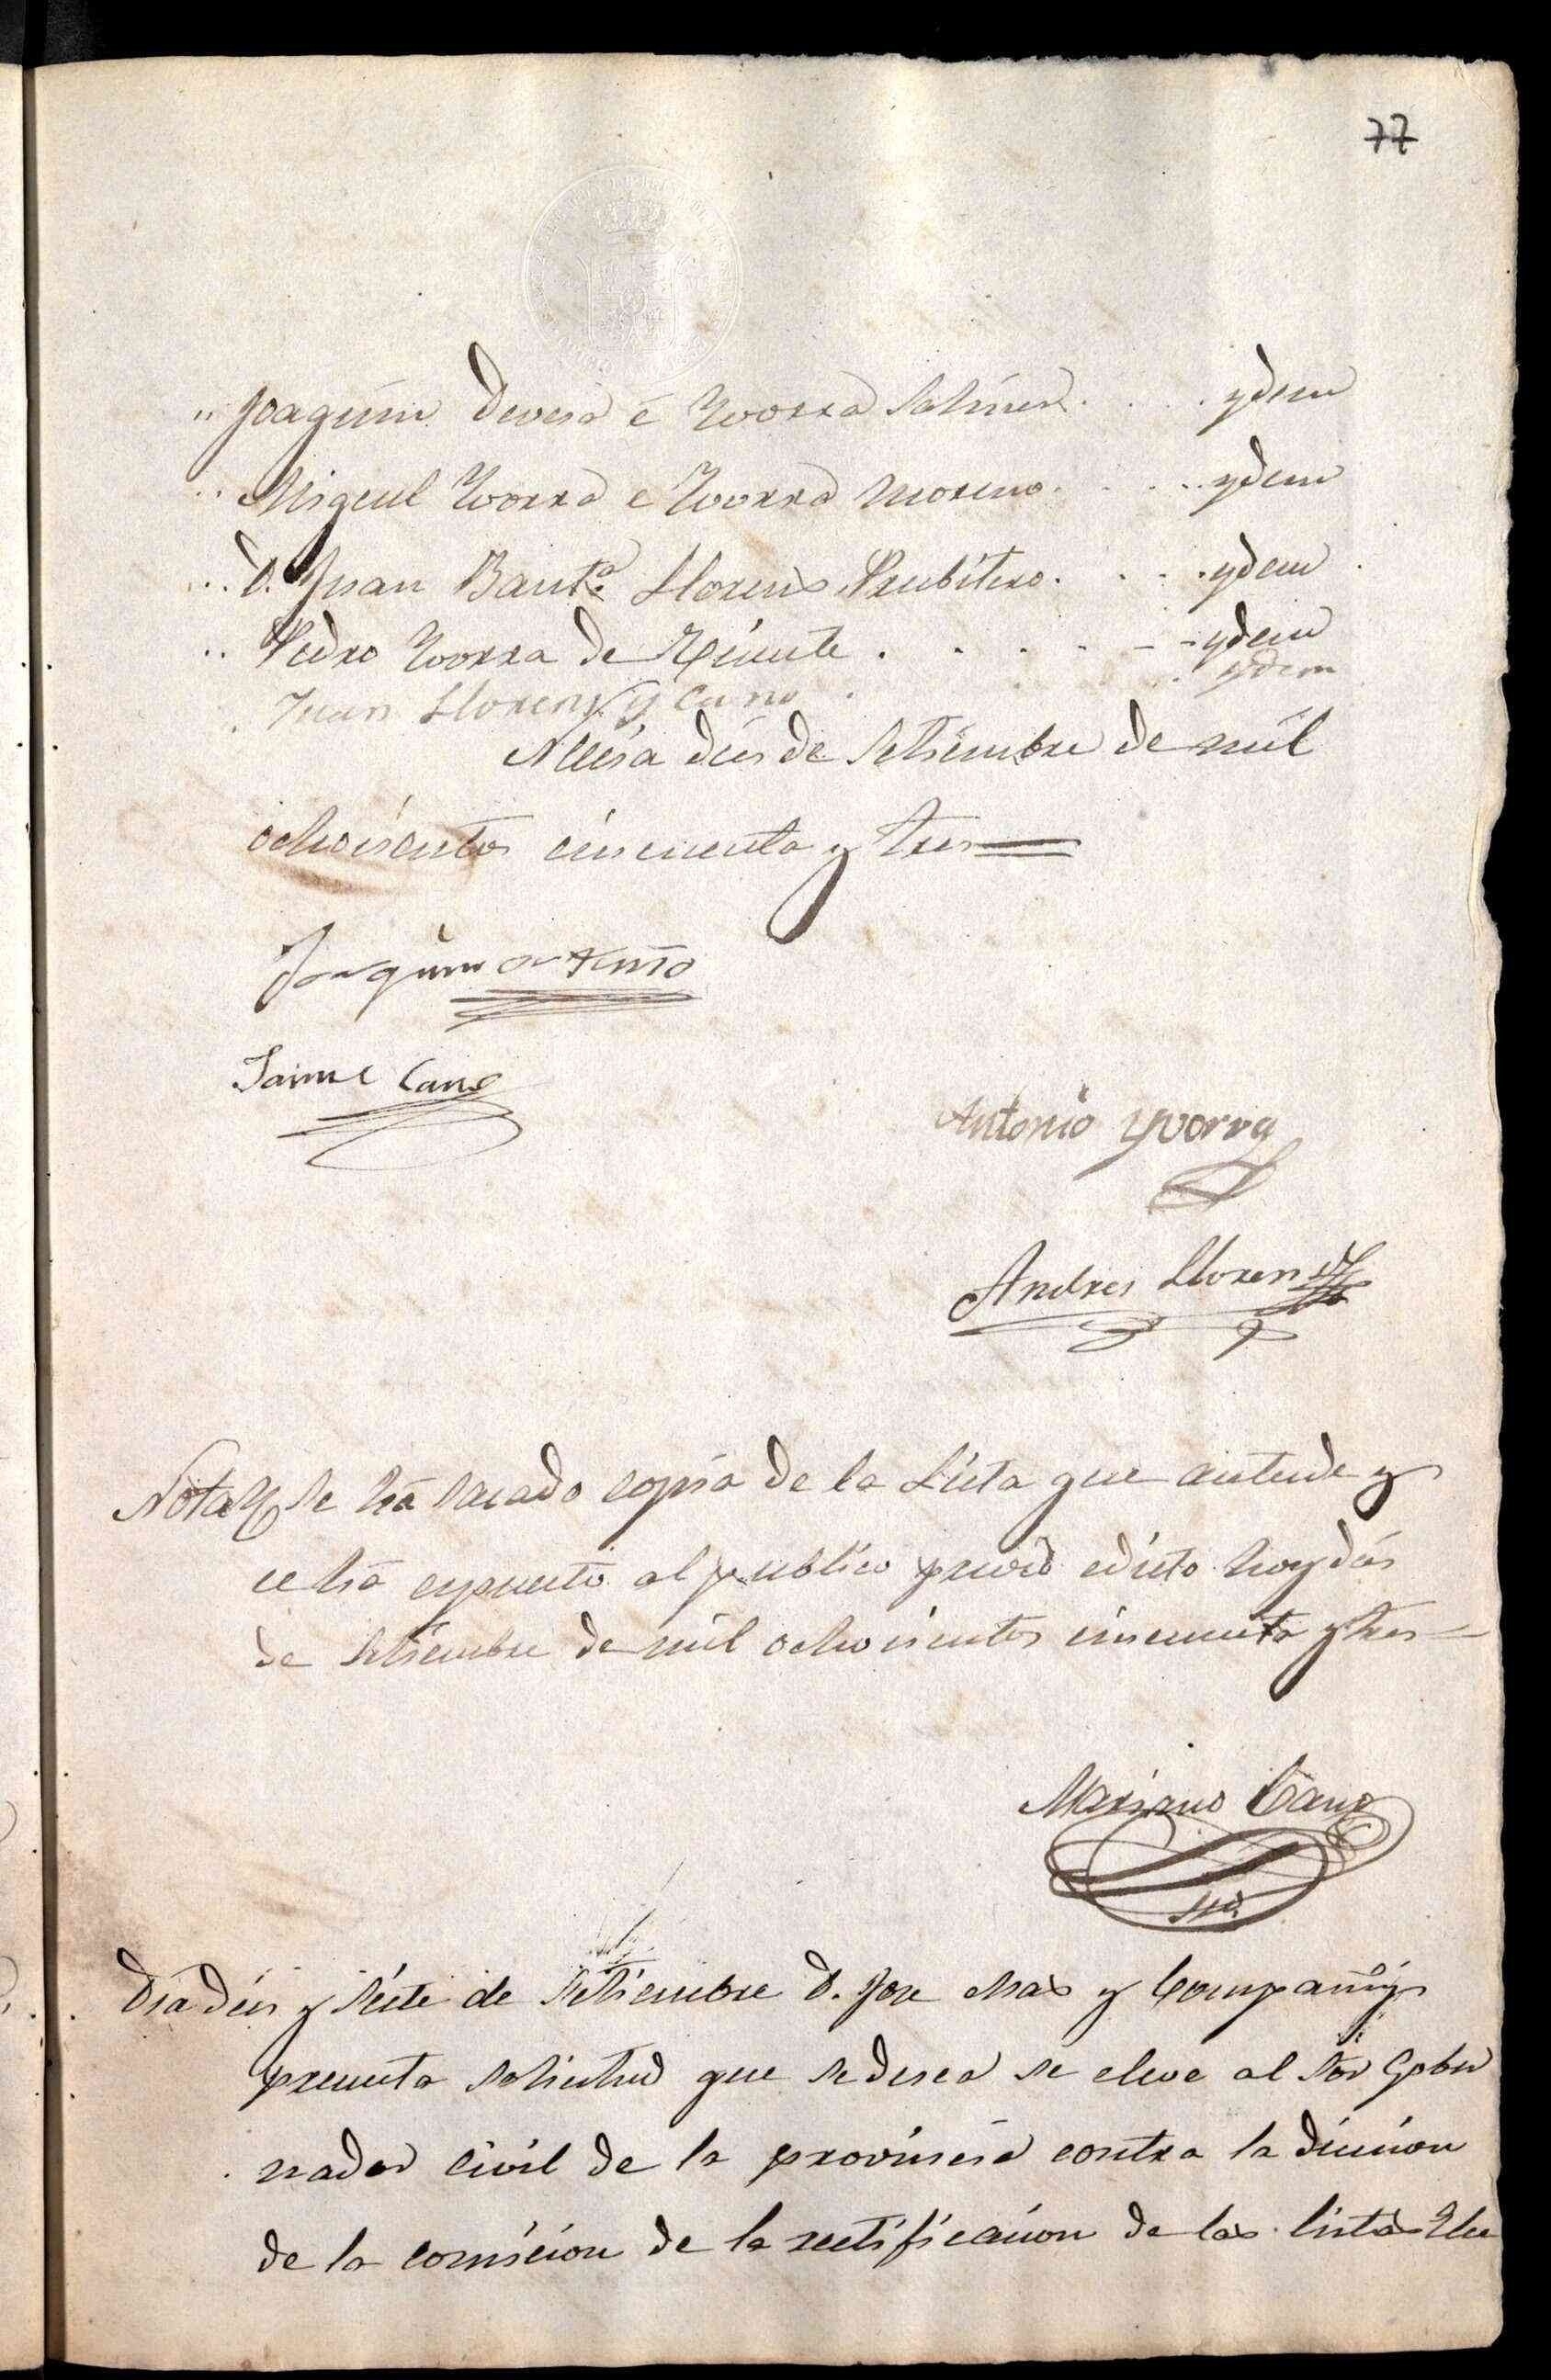 77
" Joaquin Devesa é Yvorra Salines . . . . ydem
.. Miguel Yvorra é Yvorra Moreno . . . . ydem
.. D. Juan Baut.ª Llorens Prubitero . . . . ydem
.. Pedro Yvorra de Visente . . . . - - ydem
. Juan Llorens y Cano . . ydem
diés de Setiembre de mil
ochosientos cincuenta y tres
Joaquin
Jaime Cano
Antonio Yvorra
Andres Llorens
Nota Se há sacado copia de la Lista que antecede y
se há espuesto al publico previo edicto hoy dies
de Setiembre de mil ochosientos cincuenta y tres
Mariano Cano
Srio.
Dia dies y siete de Setiembre D. Jose Mas y Compañia
presenta solicitud que se desea se eleve al Sor Gober
nador civil de la provinsia contra la desicion
de la comision de la rectificacion de las listas Elec